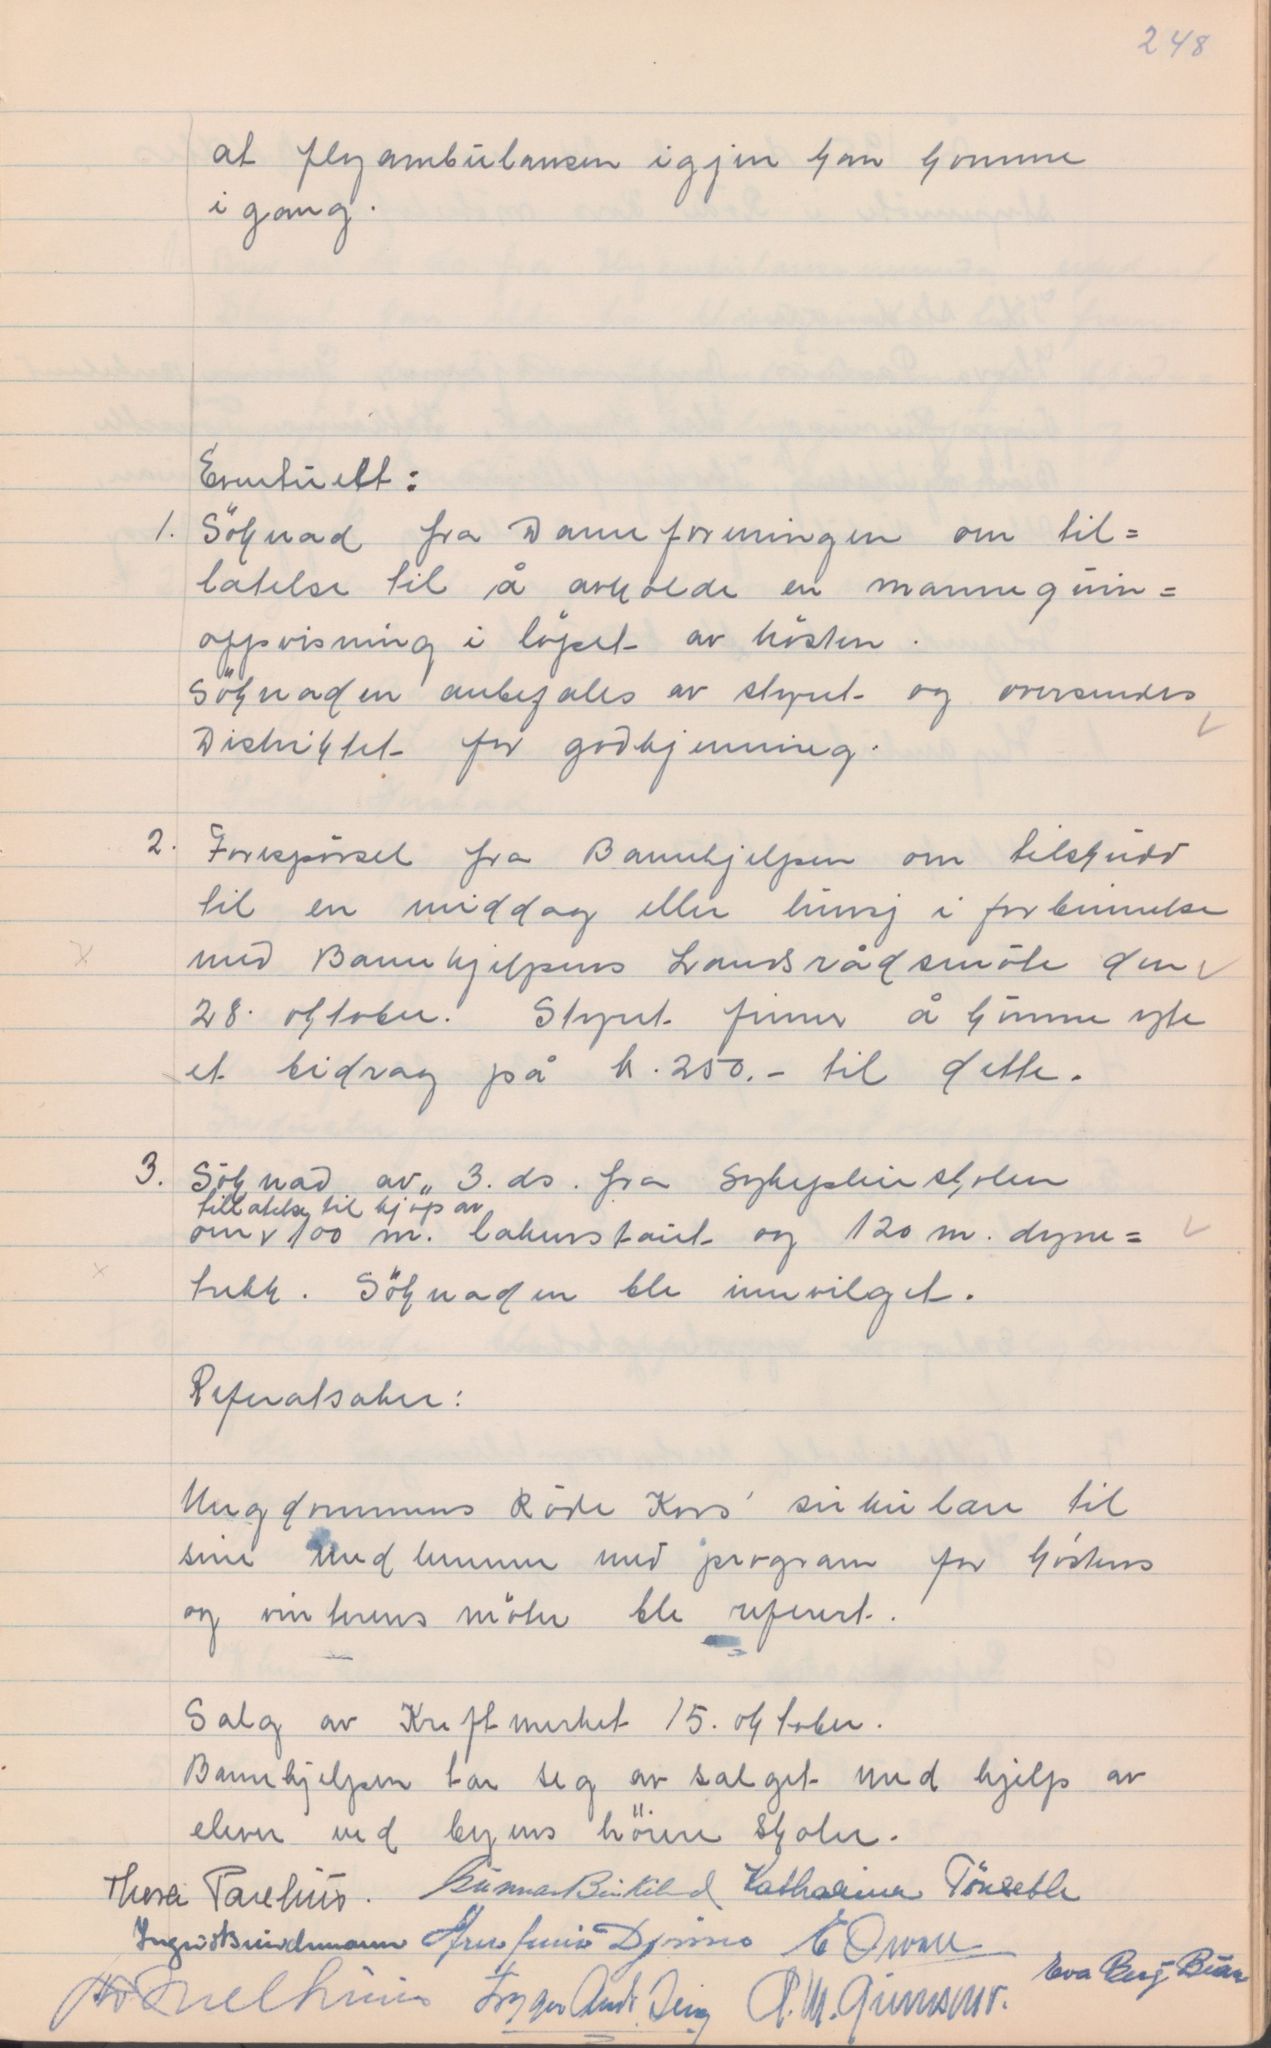 248
at flyambulansen igjen kan komme
i gang.
Eventuelt:
1. Söknad fra Dameforeningen om til=
latelse til å avholde en mannequin=
oppvisning i löpet av hösten.
Söknaden anbefales av styret og oversendes
Distriktet for godkjenning.
2. Forespörsel fra Barnehjelpen om tilskudd
til en middag eller lunsj i forbinnelse
med Barnehjelpens Landsrådsmöte den
28. oktober. Styret finner å kunne yte
et bidrag på kr. 250.- til dette.
3. Söknad av 3. ds. fra Sykepleierskolen
tillatelse til kjöp av
om 100 m. lakenstout og 120 m. dyne=
trekk. Söknaden ble innvilget.
Referatsaker:
Ungdommens Röde Kors' sirkulære til
sine medlemmer med program for höstens
og vinterens möter ble referert.
Salg av Kreftmerket 15. oktober.
Barnehjelpen tar seg av salget med hjelp av
elever ved byens höiere skoler.
Thora Parelius. Gunnar Birkeland Katharina Tönseth
E
Eva Berg